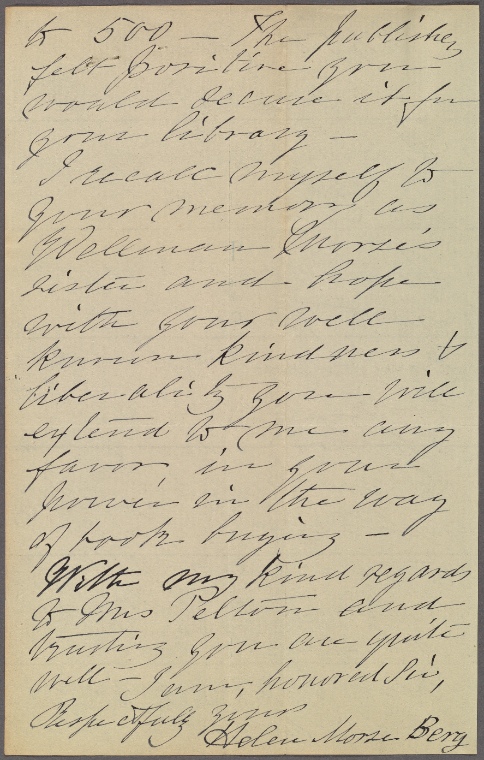 to 500 — The publishers
felt positive you
would secure it for
your library —
I recall myself to
your memory as
Wellman Morse's
sister and hope
with your well
known kindness &
liberality you will
extend to me any
favor in your
power in the way
of book buying —
With my kind regards
to Mrs Pelton and
trusting you are quite
well — I am, honored Sir,
Respectfully yours
Helen Morse Berg